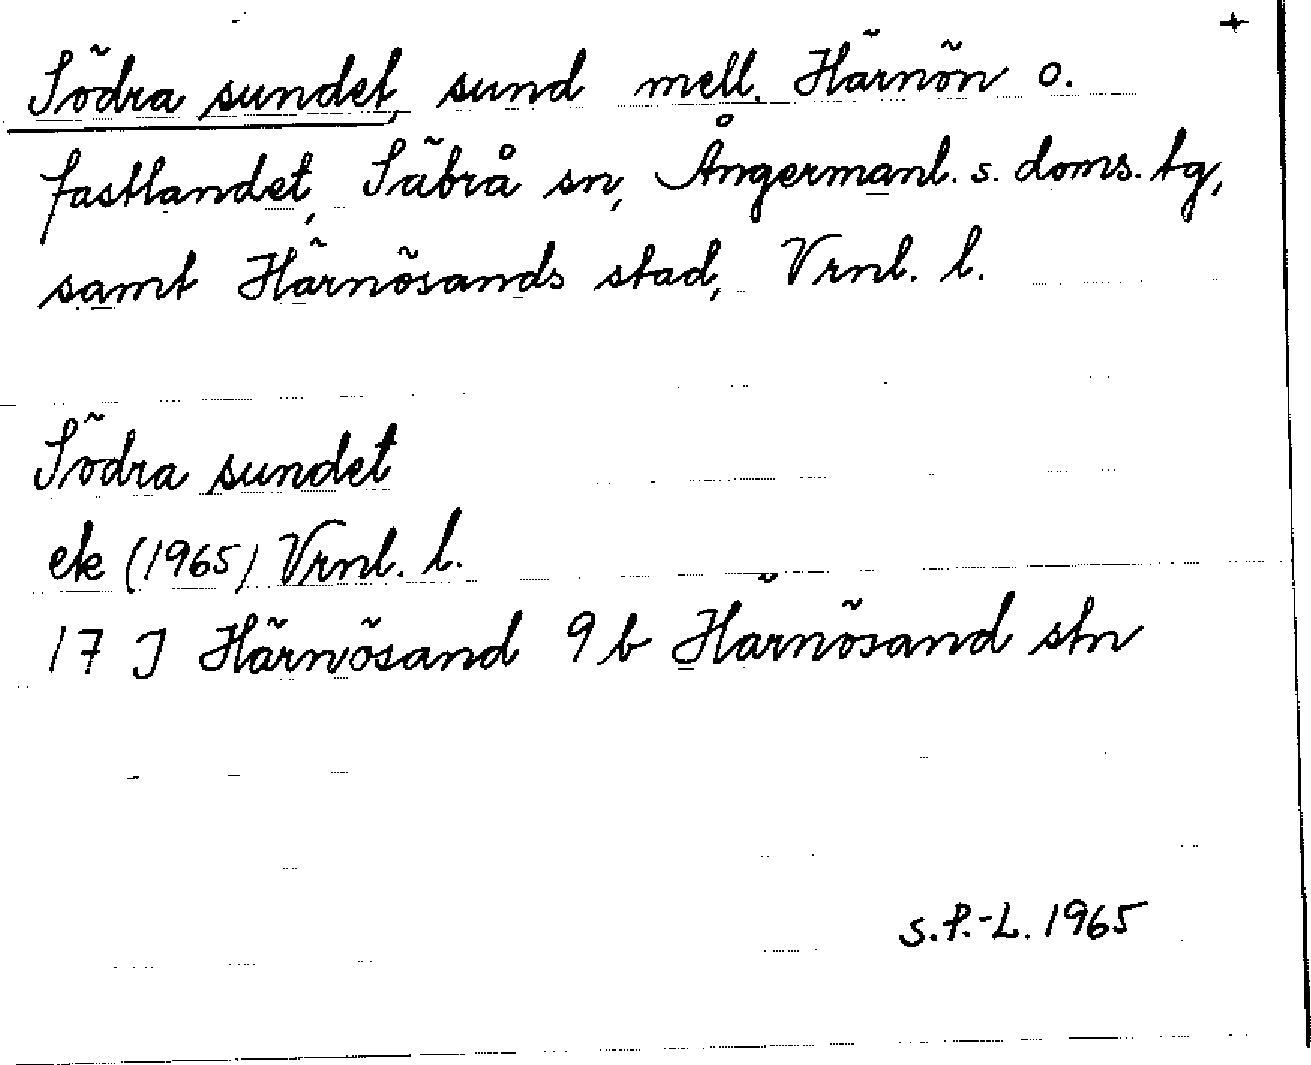 +
Södra sundet, sund mell. Härnön o.
fastlandet, Säbrå sn, Ångermanl. s. doms. tg,
samt Härnösands stad, Vrnl. l.
Södra sundet
ek (1965) Vrnl. l.
17 J Härnösand 9 b Härnösand stn
s.P.-L. 1965